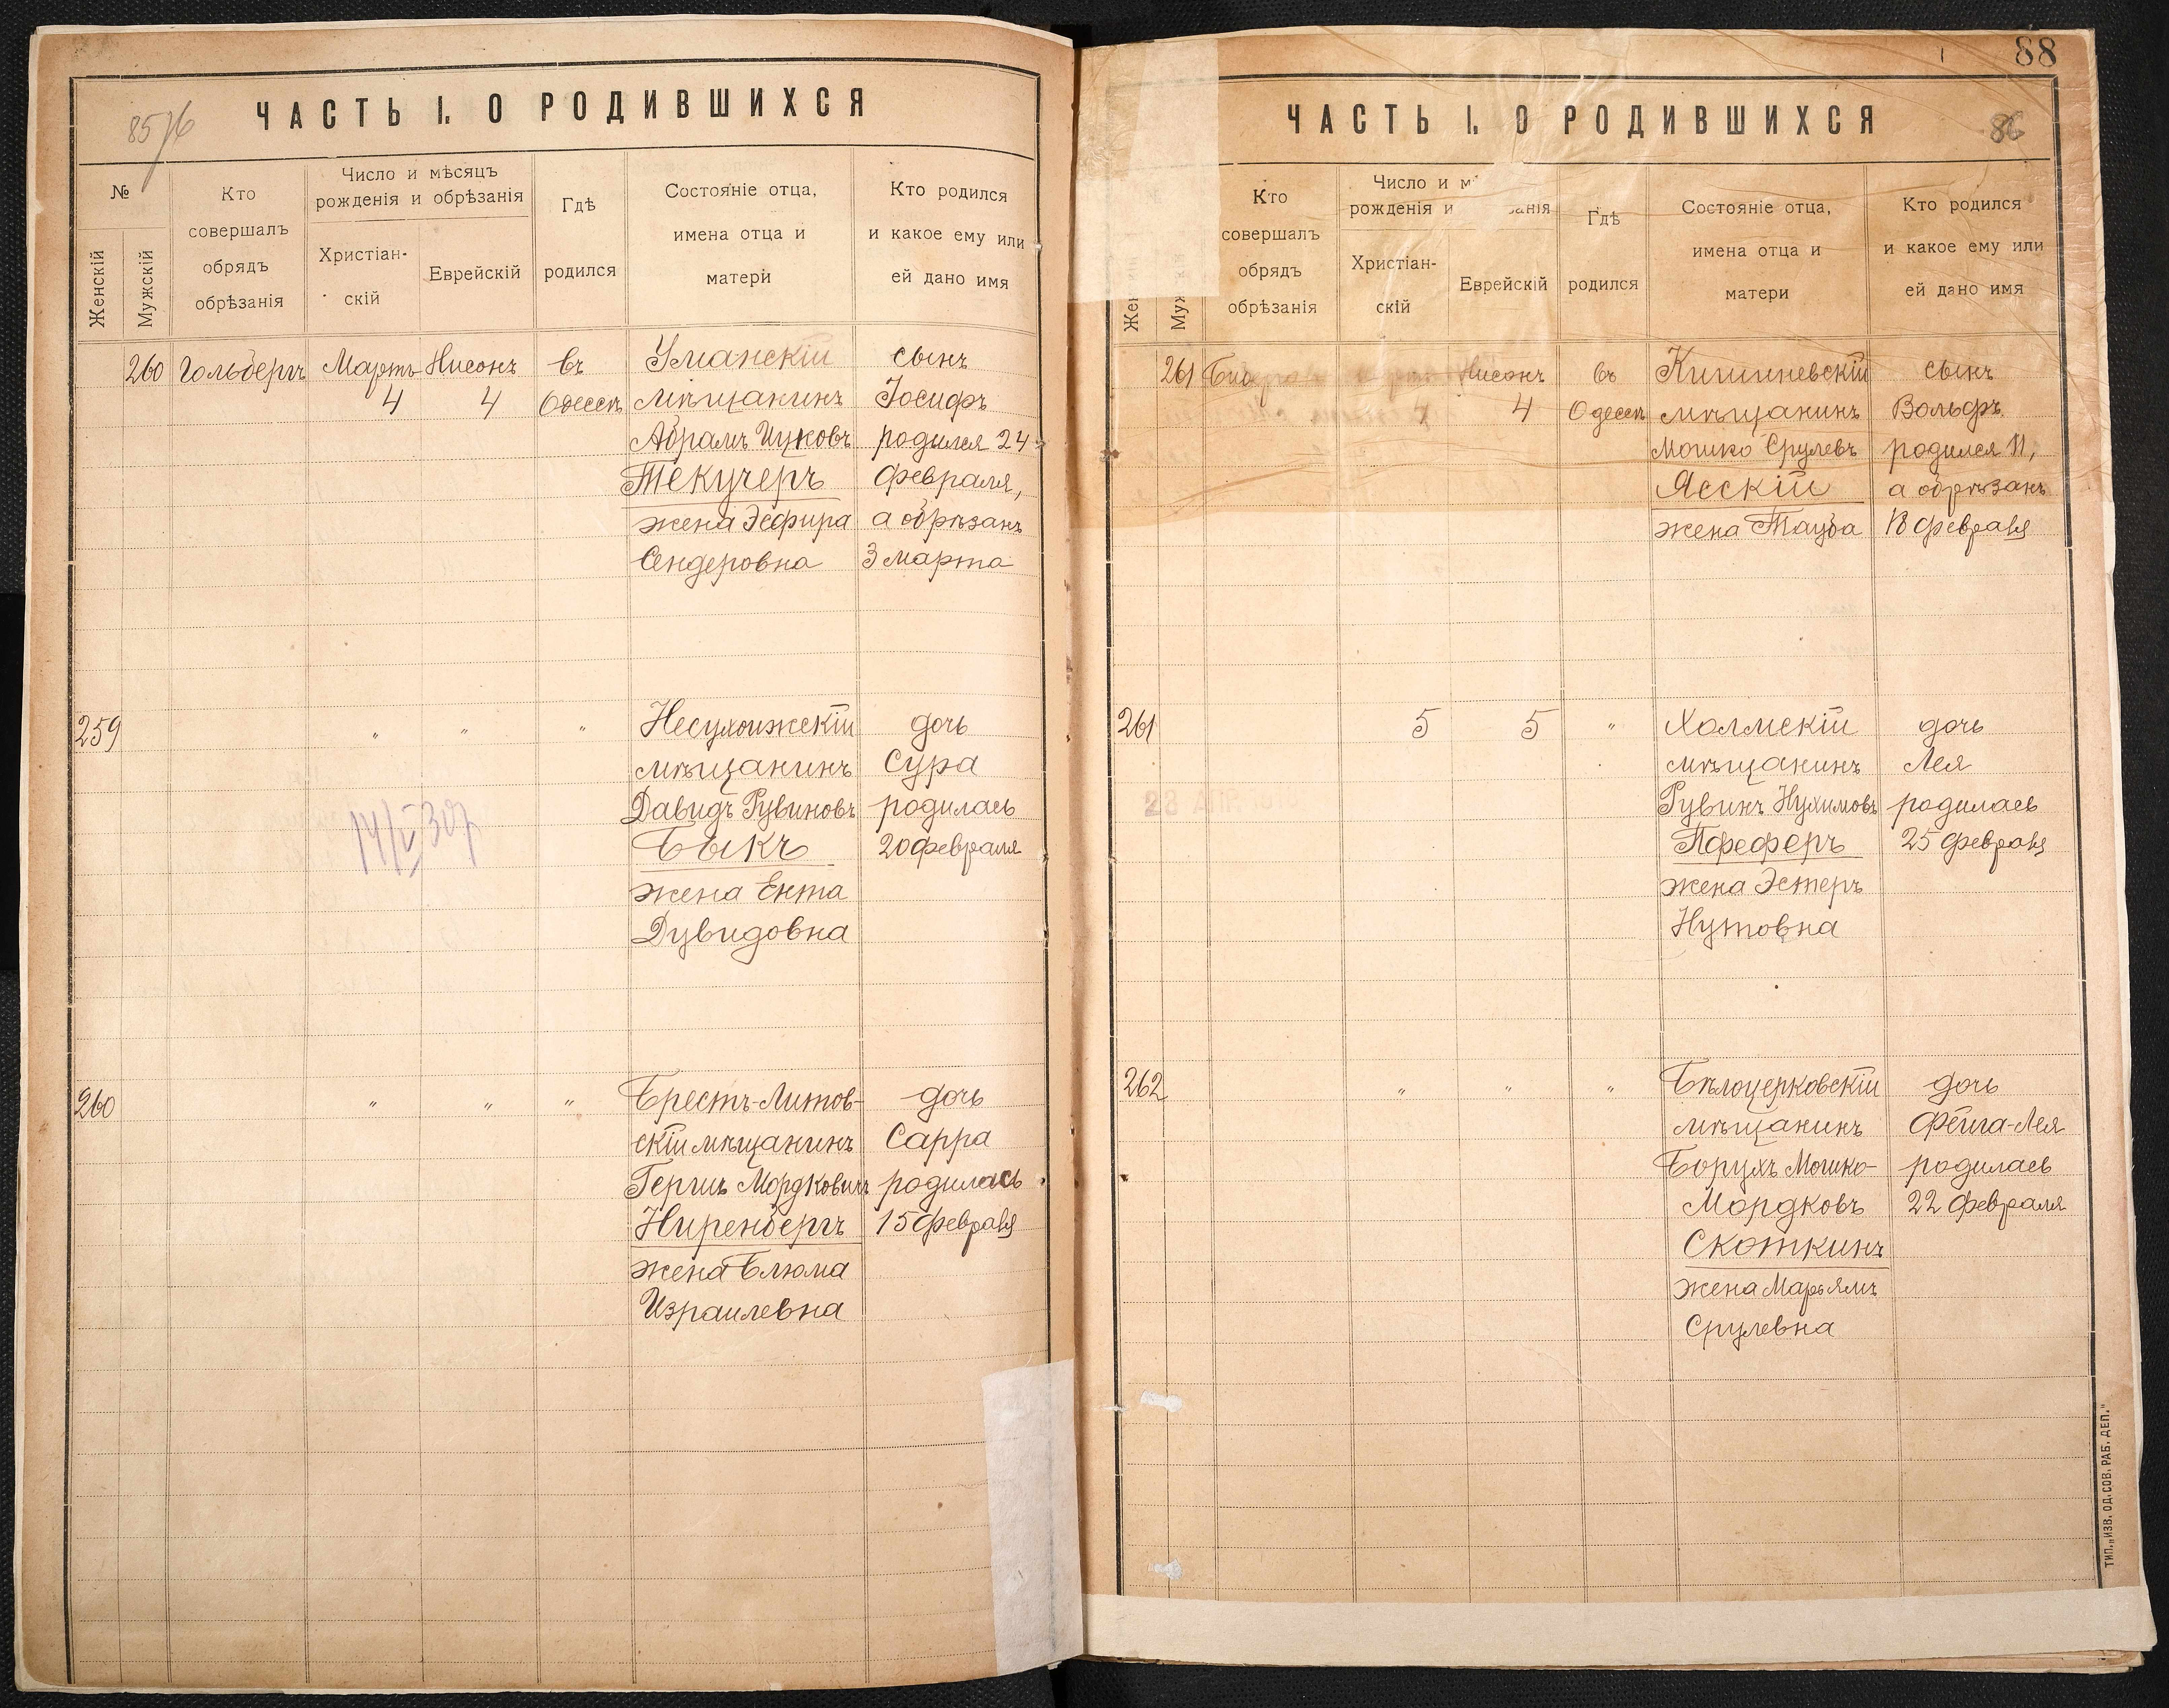 ЧАСТЬ I. О РОДИВШИХСЯ
№
Женскій
Мужскій
Кто
совершалъ
обрядъ
обрѣзанія
Число и мѣсяцъ
рожденія и обрѣзанія
Христіан-
скій
Еврейскій
Гдѣ
родился
Состояніе отца,
имена отца и
матери
Кто родился
и какое ему или
ей дано имя
260
Гольдбергъ
Мартъ
4
Нисонъ
4
въ
Одессѣ
Уманскій
мѣщанинъ
Абрамъ Ицковъ
Текучеръ
жена Эсфира
Сендеровна
сынъ
Іосифъ
родился 24
февраля,
а обрѣзанъ
3 марта
259
"
"
"
14/V 307
Несухоижскій
мѣщанинъ
Давидъ Рувиновъ
Быкъ
жена Ента
Дувидовна
дочь
Сура
родилась
20 февраля
260
"
"
"
Брестъ-Литов-
скій мѣщанинъ
Гершъ Мордковичъ
Ниренбергъ
жена Блюма
Израилевна
дочь
Сарра
родилась
15 февраля
88
ЧАСТЬ I. О РОДИВШИХСЯ
86
Кто
совершалъ
обрядъ
обрѣзанія
Число и
рожденія и
Христіан-
скій
Еврейскій
Гдѣ
родился
Состояніе отца,
имена отца и
матери
Кто родился
и какое ему или
ей дано имя
261
Нисонъ
4
4
въ
Одессѣ
Кишиневскій
мѣщанинъ
Мошко Срулевъ
Ясскій
жена Тауба
сынъ
Вольфъ
родился 11,
а обрѣзанъ
18 февраля
261
5
5
"
Холмскій
мѣщанинъ
Рувинъ Нухимовъ
Пфеферъ
жена Эстеръ
Нутовна
дочь
Лея
родилась
25 февраля
23 АПР.
262
"
"
"
Бѣлоцерковскій
мѣщанинъ
Борухъ Мошко-
Мордковъ
Скоткинъ
жена Марьямъ
Срулевна
дочь
Фейга-Лея
родилась
22 февраля
ТИП. „ИЗВ. ОД. СОВ. РАБ. ДЕП."